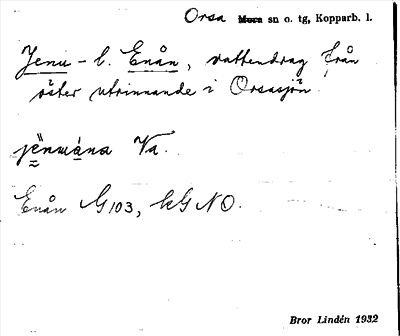 Orsa Mora sn o. tg, Kopparb. l.
Jenu - l. Enån, vattendrag från
öster utrinnande i Orsasjön.
jēnmȧna Va.
Enån G 103, kG NO.
Bror Lindén 1932